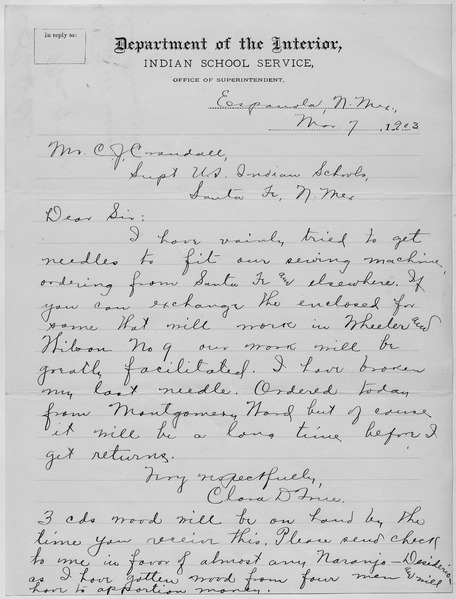 In reply to:
Department of the Interior,
INDIAN SCHOOL SERVICE,
OFFICE OF SUPERINTENDENT,
Espanola, N. Mex.,
Mar 7, 1903
Mr. C. J. Crandall,
Supt U.S. Indian Schools,
Santa Fe, N. Mex
Dear Sir:
I have vainly tried to get
needles to fit our sewing machine,
ordering from Santa Fe and elsewhere. If
you can exchange the enclosed for
some that will work in Wheeler and
Wilson No 9 our work will be
greatly facilitated. I have broken
my last needle. Ordered today
from Montgomery Ward but of course
it will be a long time before I
get returns.
Very respectfully,
Clara D True.
3 cds wood will be on hand by the
time you receive this. Please send check
to me in favor of almost any Naranjo - Desiderio
as I have gotten wood from four men & will
have to apportion money.